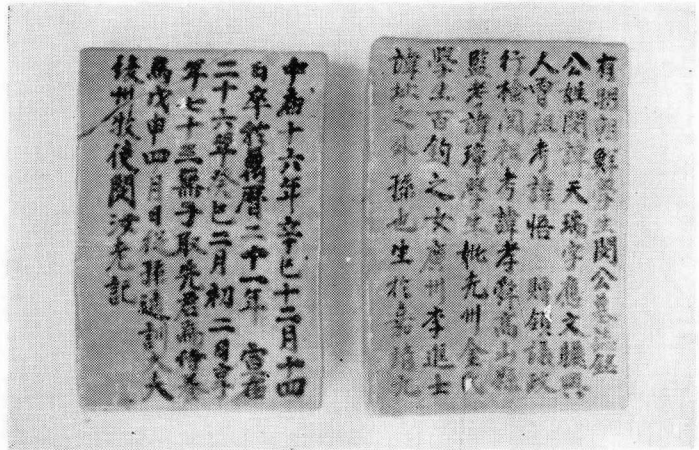 有明朝鮮學生閔公墓誌銘
公姓閔諱天瑞字應文驪興
人曾祖考諱悟 贈領議政
行檢閱祖考諱孝舜高山縣
監考諱璋學生妣光州金氏
學生百鈞之女廣州李進士
諱之外孫也生於嘉靖元
中廟十六年辛巳十二月十四
日卒於萬曆二十一年 宣廟
二十六年癸巳二月初二日享
年七十三無子取先君爲侍養
焉戊申四月日從孫通訓大夫
綾州牧使閔汝老記